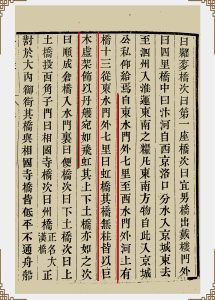 曰糶麥橋次曰第一座橋次曰宜男橋出戴樓門外
曰四里橋中曰汴河自西京洛口分水入京城東去
至泗州入淮運東南之糧凡東南方物自此入京城
公私仰給焉自東水門外七里至西水門外河上有
橋十三從東水門外七里曰虹橋其橋無柱皆以巨
木虛架飾以丹艧宛如飛虹其上下土橋亦如之次
曰順成倉橋入水門裏曰便橋次曰下土橋次曰上
土橋投西角子門曰相國寺橋次曰州橋正名天漢橋正
對於大內御街其橋與相國寺橋皆低平不通舟船